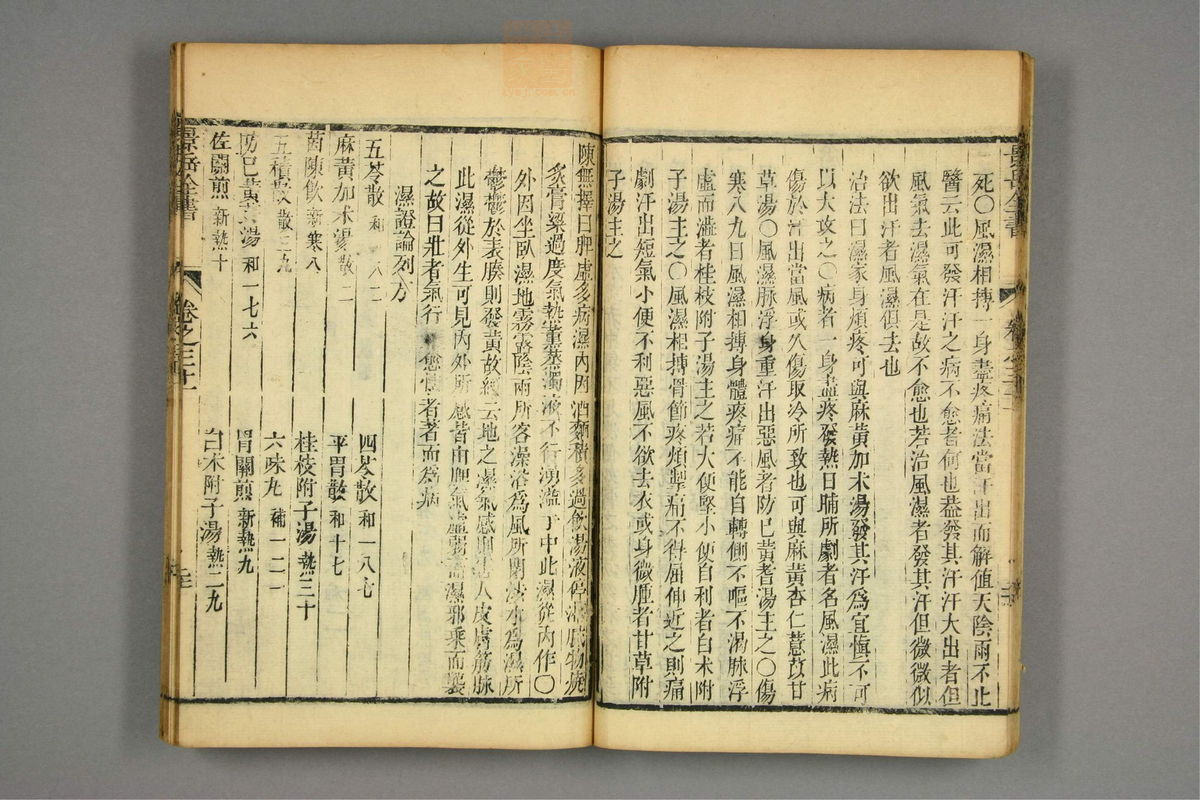 死○風濕相搏一身盡疼痛法當汗出而解值天陰雨不止
醫云此可發汗汗之病不愈者何也蓋發其汗汗大出者但
風氣去濕氣在是故不愈也若治風濕者發其汗但微微似
欲出汗者風濕俱去也
治法曰濕家身煩疼可與麻黃加朮湯發其汗爲宜愼不可
以火攻之○病者一身盡疼發熱日晡所劇者名風濕此病
傷於汗出當風或久傷取冷所致也可與麻黃杏仁薏苡甘
草湯○風濕脉浮身重汗出惡風者防已黃耆湯主之○傷
寒八九日風濕相搏身體疼痛不能自轉側不嘔不渴脉浮
虛而濇者桂枝附子湯主之若大便堅小便自利者白朮附
子湯主之○風濕相搏骨節疼煩掣痛不得屈伸近之則痛
劇汗出短氣小便不利惡風不欲去衣或身微腫者甘草附
子湯主之
陳無擇曰脾虛多病濕內因酒麵積多過飲湯液停滯膩物燒
炙膏粱過度氣熱薰蒸濁液不行湧溢于中此濕從內作○
外因坐臥濕地霧露陰雨所客澡浴爲風所閉涉水爲濕所
鬱鬱於表腠則發黃故經云地之濕氣感則害人皮膚筋脉
此濕從外生可見內外所感皆由脾氣虛弱而濕邪乘而襲
之故曰壯者氣行則愈怯者著而爲病
濕證論列方
五苓散 和一八二 四苓散 和一八七
麻黃加朮湯 散二 平胃散 和十七
茵陳飲 新寒八 桂枝附子湯 熱三十
五積散 散三九 六味丸 補一二一
防已黃耆湯 和一七六 胃關煎 新熱九
佐關煎 新熱十 白朮附子湯 熱二九
景岳全書 卷之三十一